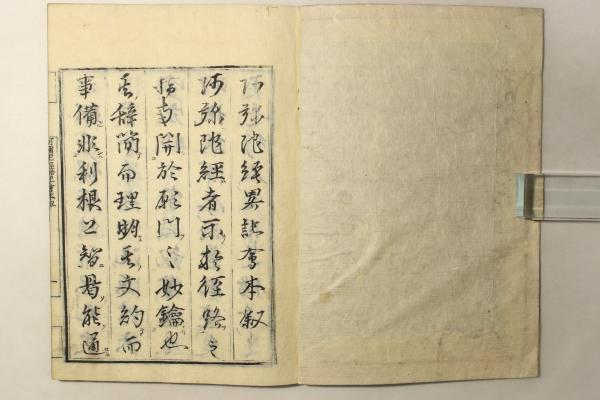 阿彌陀經畧記會本叙
阿彌陀經者示於徑路之
指南開於願門之妙鑰也
其辞簡而理明其文約而
事備非利根上智曷能通